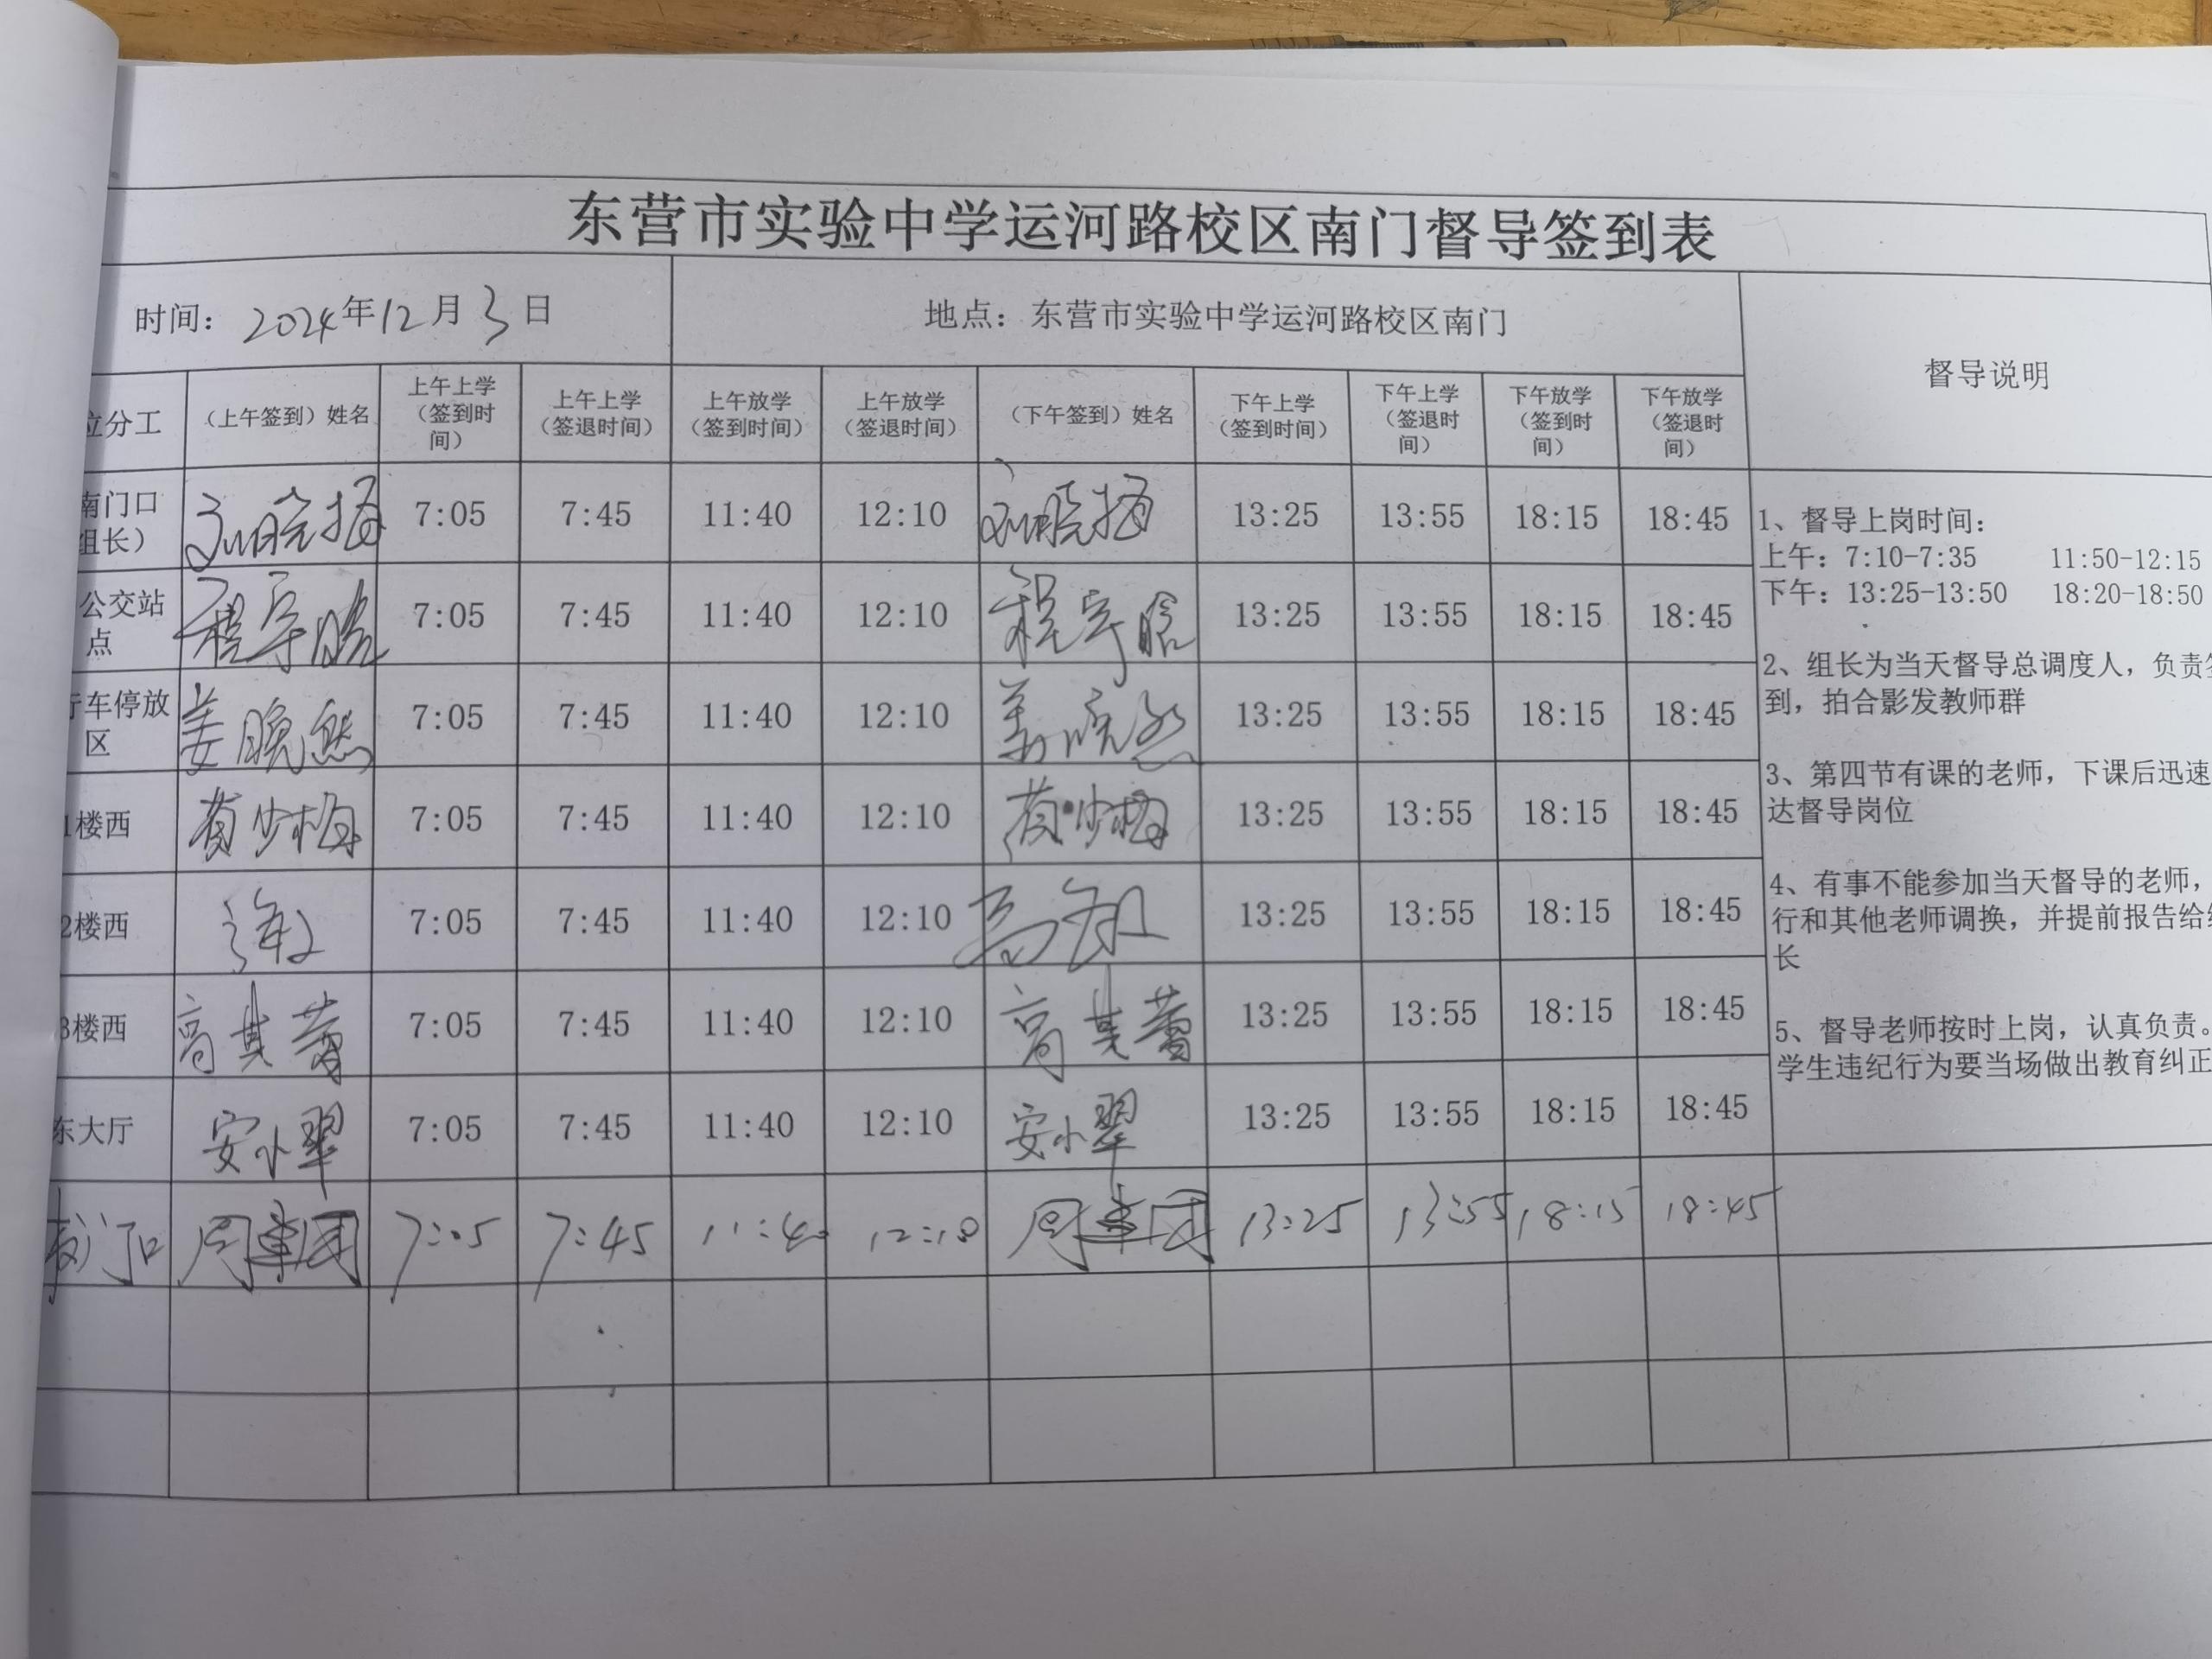 东营市实验中学运河路校区南门督导签到表
时间：2024年12月3日 地点：东营市实验中学运河路校区南门 督导说明
位分工 （上午签到）姓名 上午上学（签到时间） 上午上学（签退时间） 上午放学（签到时间） 上午放学（签退时间） （下午签到）姓名 下午上学（签到时间） 下午上学（签退时间） 下午放学（签到时间） 下午放学（签退时间）
南门口组长） 刘晓梅 7:05 7:45 11:40 12:10 刘晓梅 13:25 13:55 18:15 18:45
公交站点 程宇晗 7:05 7:45 11:40 12:10 程宇晗 13:25 13:55 18:15 18:45
行车停放区 姜晓然 7:05 7:45 11:40 12:10 姜晓然 13:25 13:55 18:15 18:45
1楼西 苟少梅 7:05 7:45 11:40 12:10 苟少梅 13:25 13:55 18:15 18:45
2楼西 7:05 7:45 11:40 12:10 13:25 13:55 18:15 18:45
3楼西 高其蕾 7:05 7:45 11:40 12:10 高其蕾 13:25 13:55 18:15 18:45
东大厅 安小翠 7:05 7:45 11:40 12:10 安小翠 13:25 13:55 18:15 18:45
门口 周 7:05 7:45 11:40 12:10 周 13:25 13:55 18:15 18:45
1、督导上岗时间：
上午：7:10-7:35 11:50-12:15
下午：13:25-13:50 18:20-18:50
2、组长为当天督导总调度人，负责签
到，拍合影发教师群
3、第四节有课的老师，下课后迅速
达督导岗位
4、有事不能参加当天督导的老师，
行和其他老师调换，并提前报告给组
长
5、督导老师按时上岗，认真负责。
学生违纪行为要当场做出教育纠正